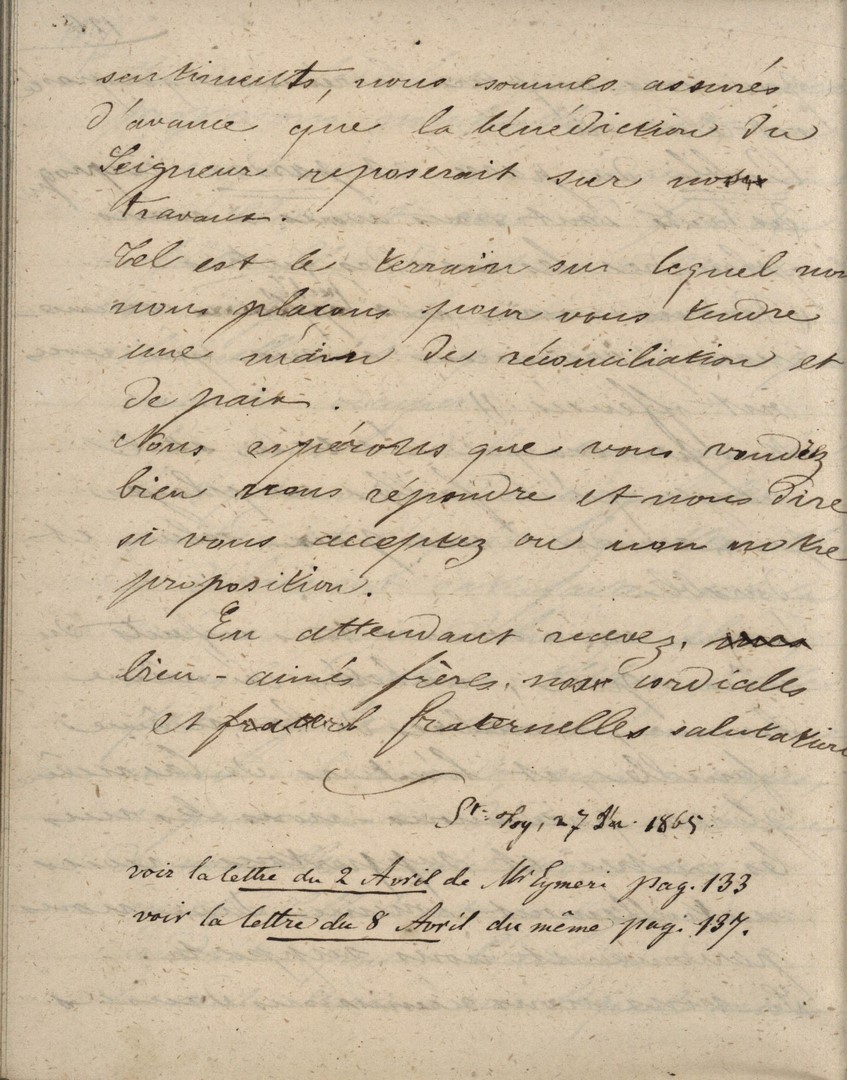 sentiments, nous sommes assurés
d'avance que la bénédiction du
Seigneur reposerait sur nos
travaux.
Tel est le terrain sur lequel nou
nous plaçons pour vous tendre
une main de réconciliation et
de paix.
Nous espérons que vous voudrez
bien nous répondre et nous dire
si vous acceptez ou non notre
proposition.
En attendant recevez,
bien-aimés frères, nos cordiales
et fraternelles salutations
St. Foy, 27 Déc. 1865
voir la lettre du 2 Avril de Mr Eymeri pag. 133
voir la lettre du 8 Avril du même pag. 137.